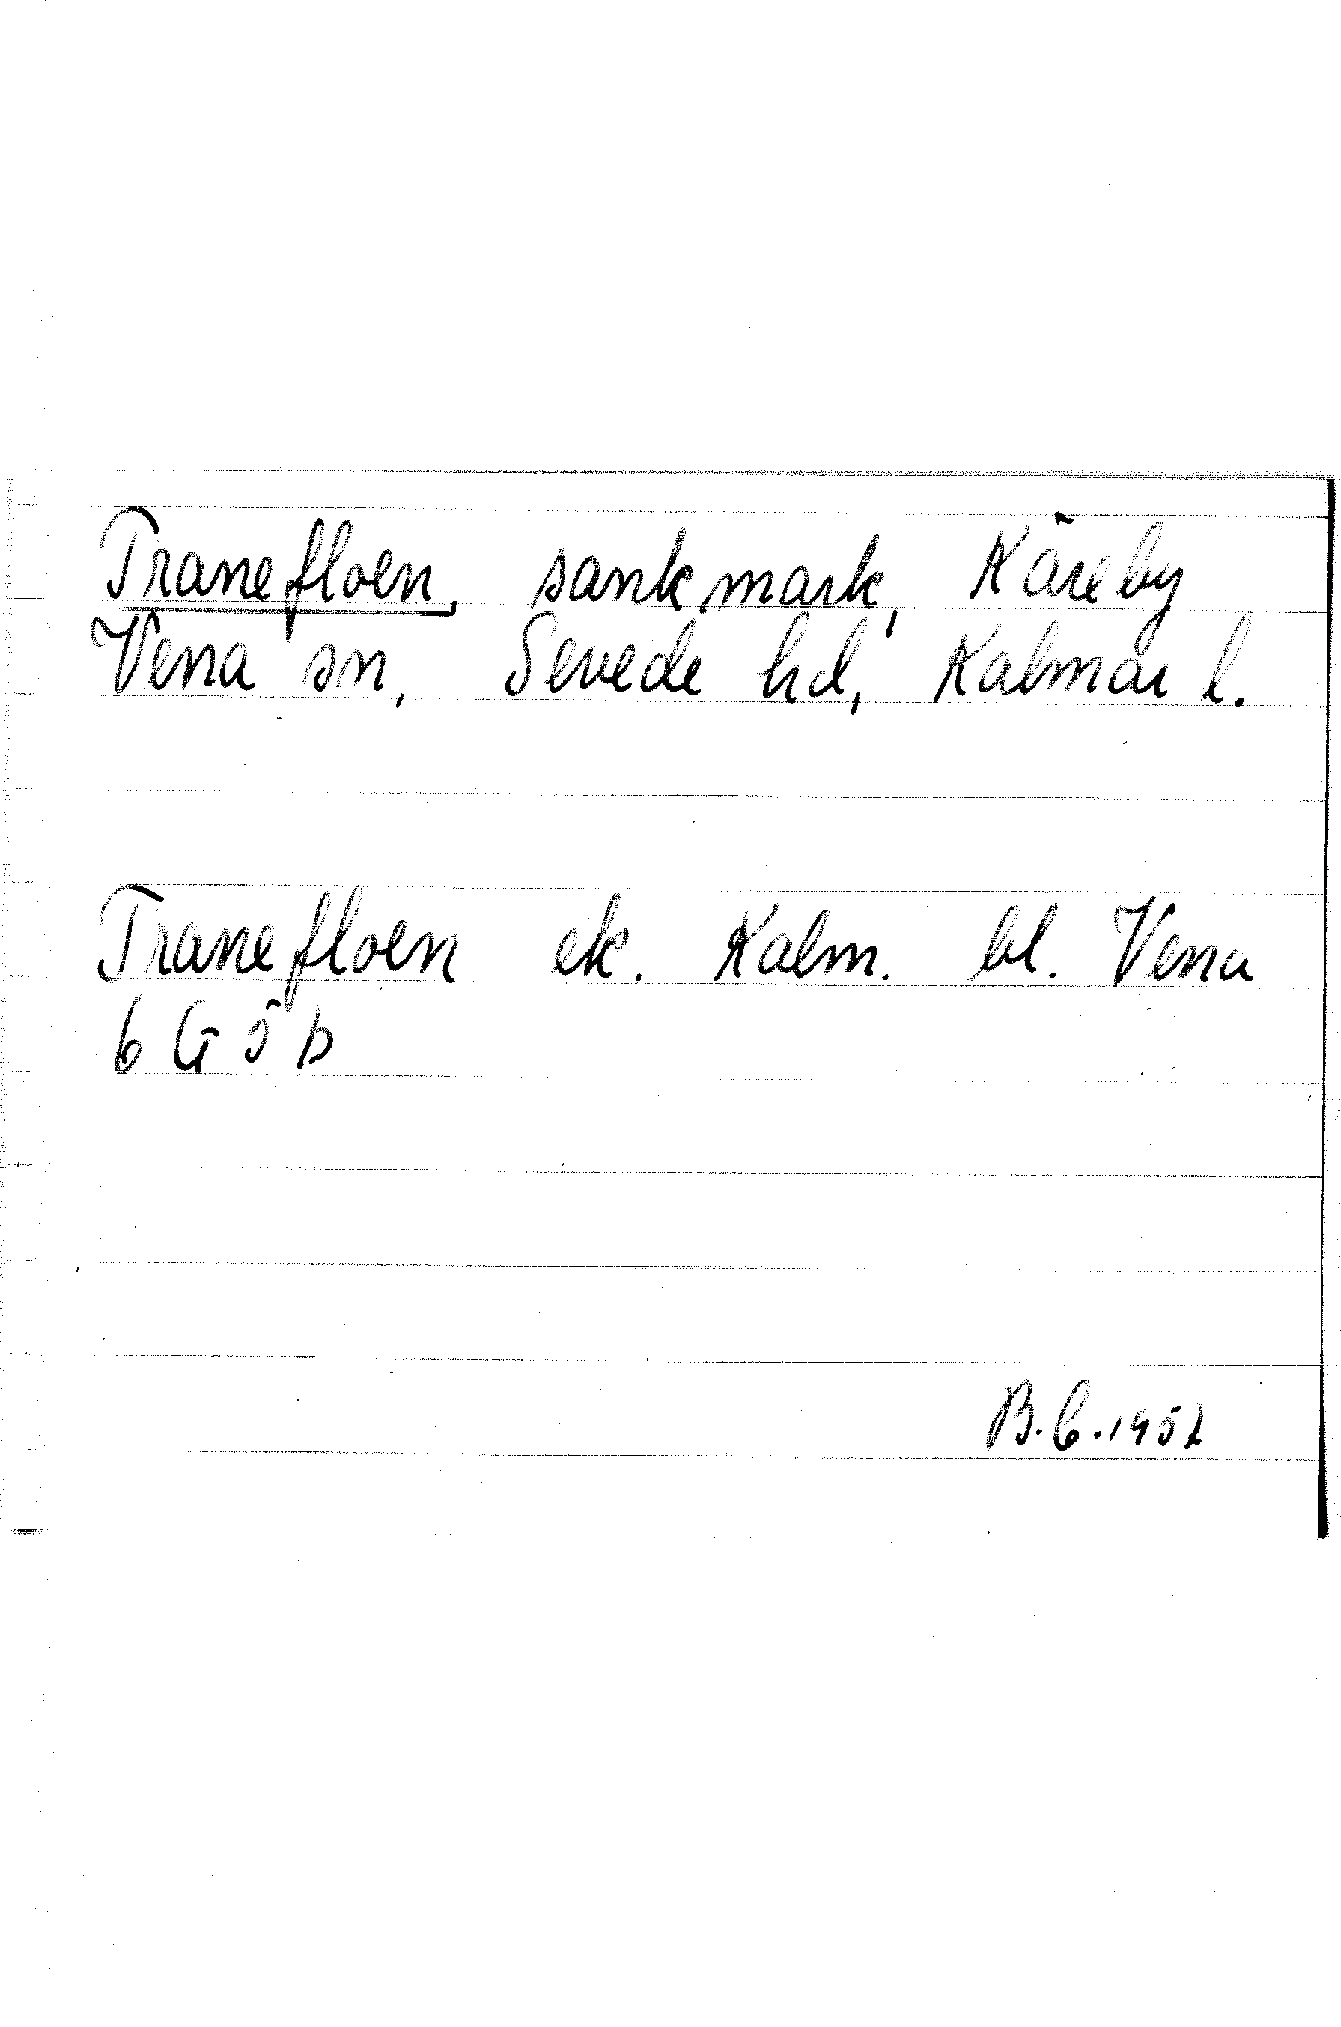 Tranefloen, sankmark, Käreby
Vena sn, Sevede hd, Kalmar l.
Tranefloen ek. Kalm. bl. Vena
6 G 5 b
B.C.1952